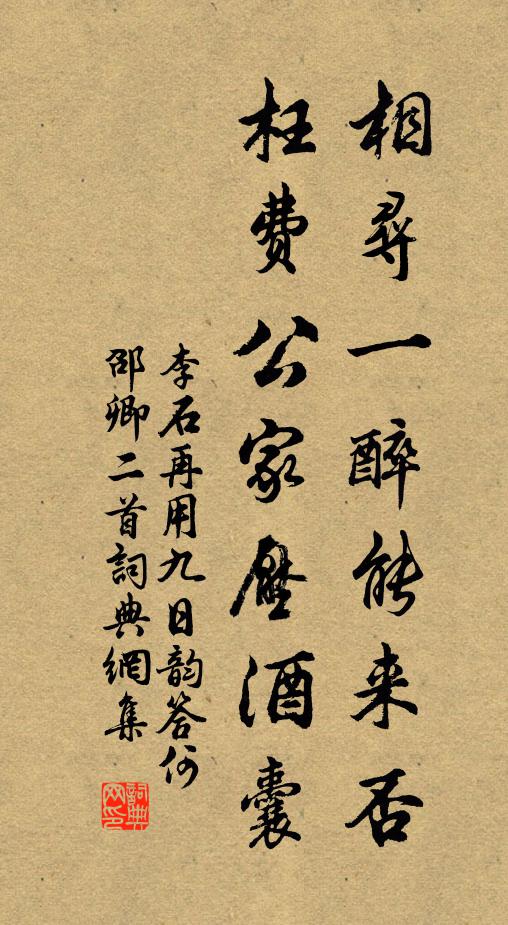 相尋一醉能来否
枉費公家壓酒囊
李石再用九日韵答何
邵卿二首詞典網集
詞典网印